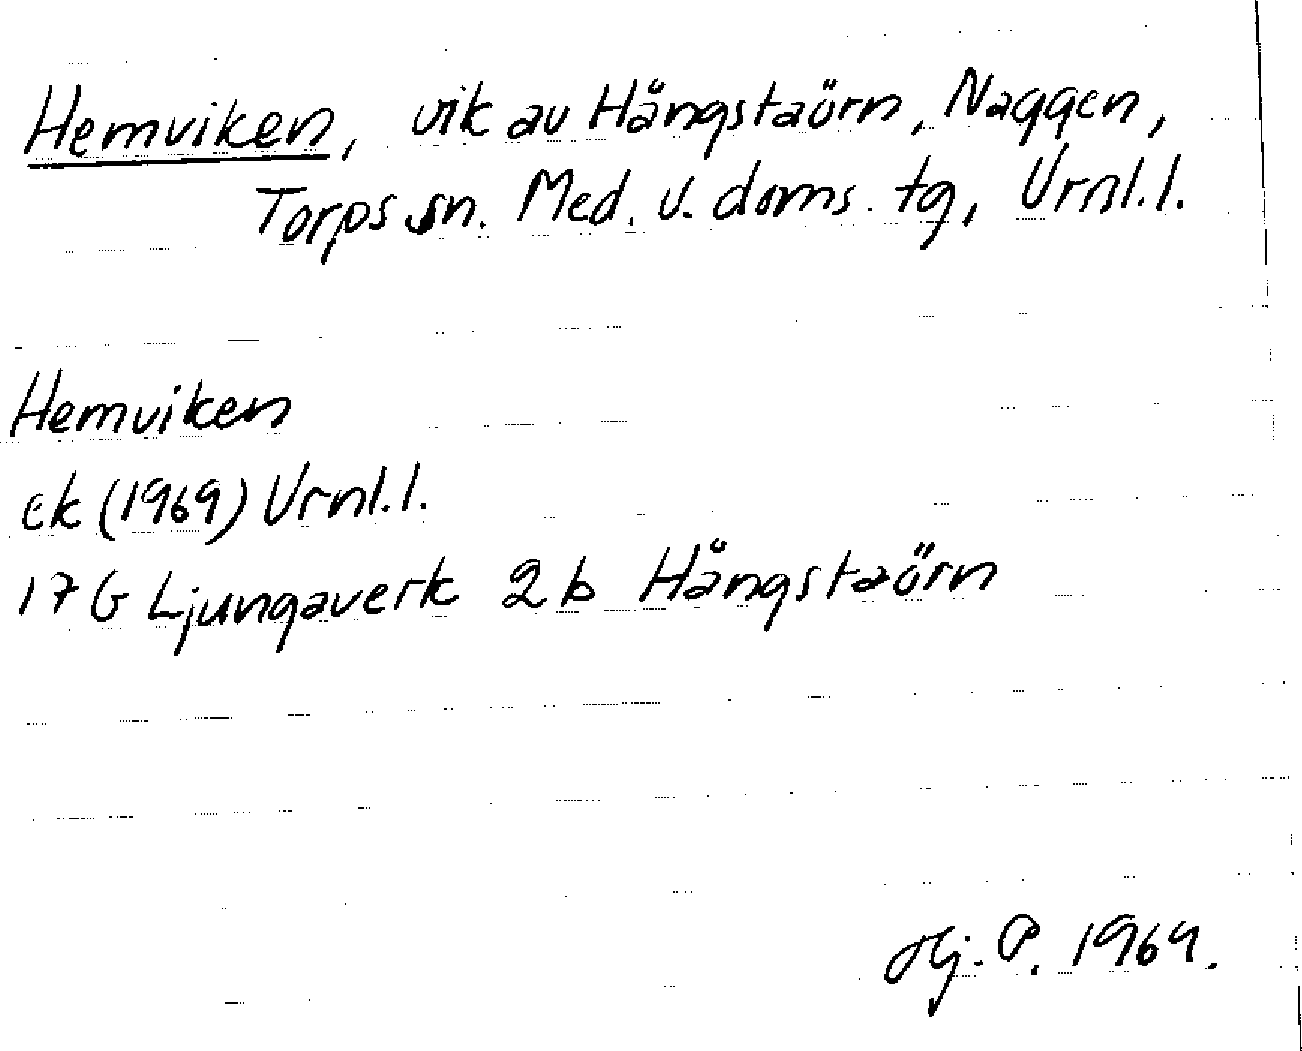 Hemviken, vik av Hångstaörn, Naggen,
Torps sn. Med. v. doms. tg, Vrnl.l.
Hemviken
ek (1969) Vrnl.l.
17 G Ljungaverk 2 b Hångstaörn
Hj. P. 1969.